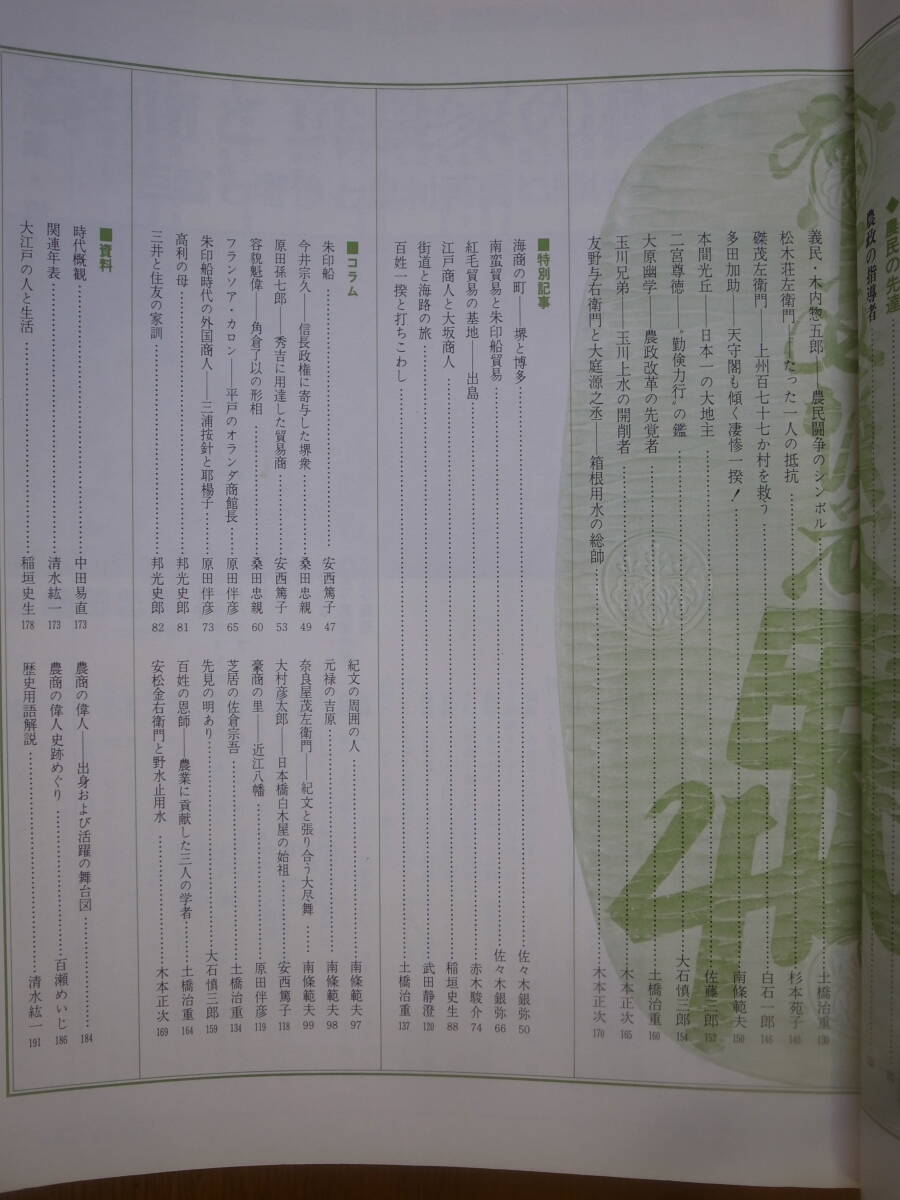 ◆農民の先達
農政の指導者
義民・木内惣五郎――農民闘争のシンボル 土橋治重 130
松木荘左衛門――たった一人の抵抗 杉本苑子 140
磔茂左衛門――上州百七十七か村を救う 白石一郎 146
多田加助――天守閣も傾く凄惨一揆! 南條範夫 150
本間光丘――日本一の大地主 佐藤三郎 152
二宮尊徳――“勤倹力行”の鑑 大石慎三郎 154
大原幽学――農政改革の先覚者 土橋治重 160
玉川兄弟――玉川上水の開削者 木本正次 165
友野与右衛門と大庭源之丞――箱根用水の総帥 木本正次 170
■特別記事
海商の町――堺と博多 佐々木銀弥 50
南蛮貿易と朱印船貿易 佐々木銀弥 66
紅毛貿易の基地――出島 赤木駿介 74
江戸商人と大坂商人 稲垣史生 88
街道と海路の旅 武田静澄 120
百姓一揆と打ちこわし 土橋治重 137
■コラム
朱印船 安西篤子 47
今井宗久――信長政権に寄与した堺衆 桑田忠親 49
原田孫七郎――秀吉に用達した貿易商 安西篤子 53
容貌魁偉――角倉了以の形相 桑田忠親 60
フランソア・カロン――平戸のオランダ商館長 原田伴彦 65
朱印船時代の外国商人――三浦按針と耶楊子 原田伴彦 73
高利の母 邦光史郎 81
三井と住友の家訓 邦光史郎 82
紀文の周囲の人 南條範夫 97
元禄の吉原 南條範夫 98
奈良屋茂左衛門――紀文と張り合う大尽舞 南條範夫 99
大村彦太郎――日本橋白木屋の始祖 安西篤子 118
豪商の里――近江八幡 原田伴彦 119
芝居の佐倉宗吾 土橋治重 134
先見の明あり 大石慎三郎 159
百姓の恩師――農業に貢献した三人の学者 土橋治重 164
安松金右衛門と野水止用水 木本正次 169
■資料
時代概観 中田易直 173
関連年表 清水紘一 173
大江戸の人と生活 稲垣史生 178
農商の偉人――出身および活躍の舞台図 184
農商の偉人史跡めぐり 百瀬めいじ 186
歴史用語解説 清水紘一 191